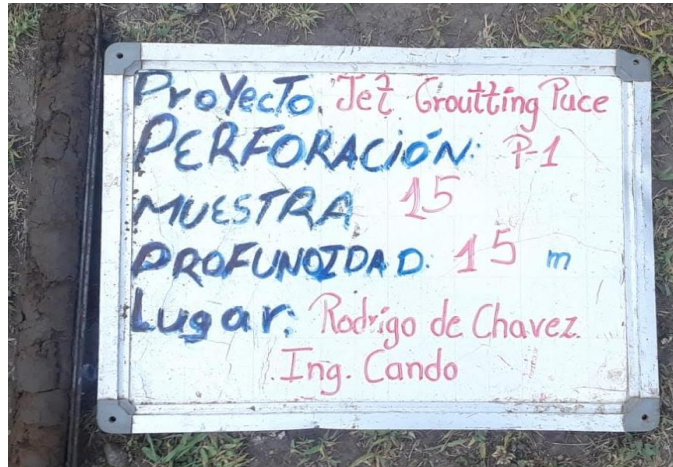 ProYecto Jet Groutting Puce
PERFORACIÓN: P-1
MUESTRA 15
PROFUNDIDAD: 15 m
Lugar: Rodrigo de Chavez.
Ing. Cando